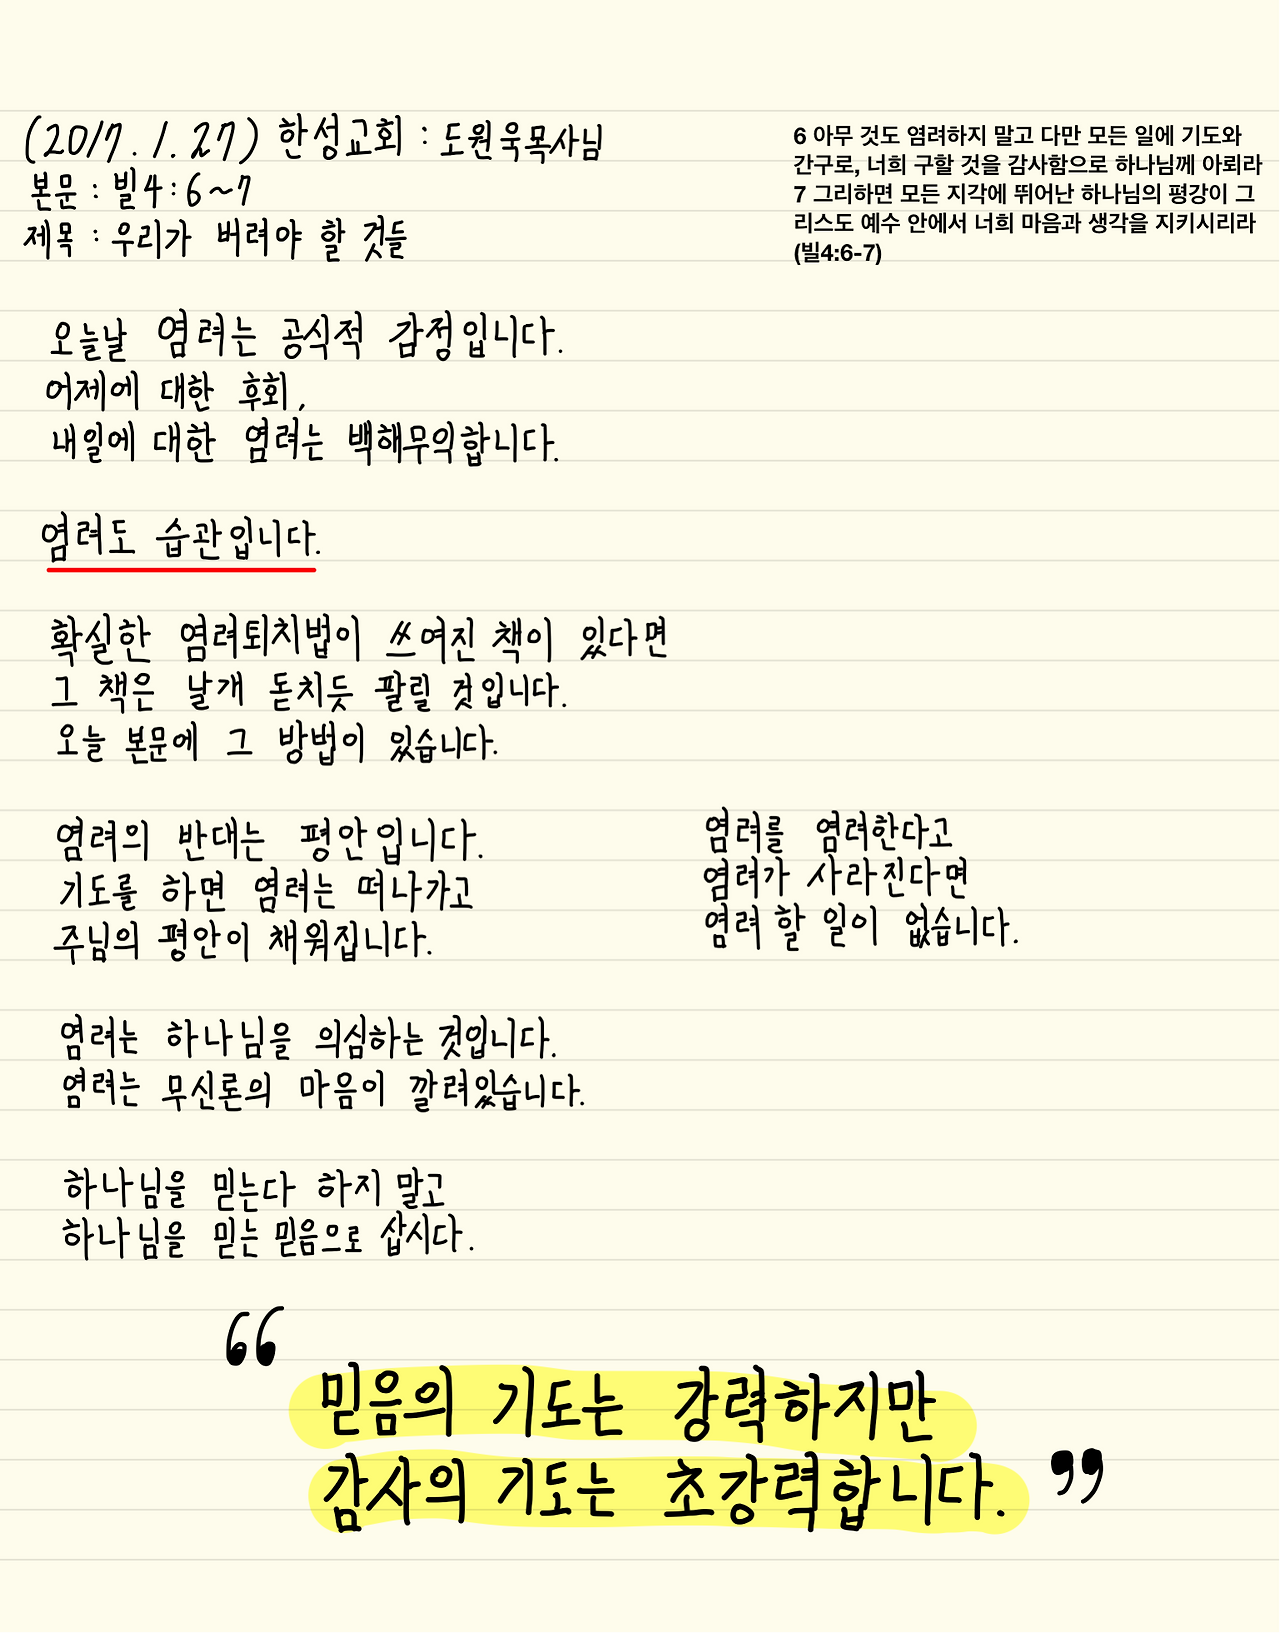 (2017.1.27) 한성교회 : 도원욱목사님
본문 : 빌4:6~7
제목 : 우리가 버려야 할 것들
6 아무 것도 염려하지 말고 다만 모든 일에 기도와
간구로, 너희 구할 것을 감사함으로 하나님께 아뢰라
7 그리하면 모든 지각에 뛰어난 하나님의 평강이 그
리스도 예수 안에서 너희 마음과 생각을 지키시리라
(빌4:6-7)
오늘날 염려는 공식적 감정입니다.
어제에 대한 후회,
내일에 대한 염려는 백해무익합니다.
염려도 습관입니다.
확실한 염려퇴치법이 쓰여진 책이 있다면
그 책은 날개 돋치듯 팔릴 것입니다.
오늘 본문에 그 방법이 있습니다.
염려의 반대는 평안입니다.
기도를 하면 염려는 떠나가고
주님의 평안이 채워집니다.
염려를 염려한다고
염려가 사라진다면
염려 할 일이 없습니다.
염려는 하나님을 의심하는 것입니다.
염려는 무신론의 마음이 깔려있습니다.
하나님을 믿는다 하지 말고
하나님을 믿는 믿음으로 삽시다.
“믿음의 기도는 강력하지만
감사의 기도는 초강력합니다.”